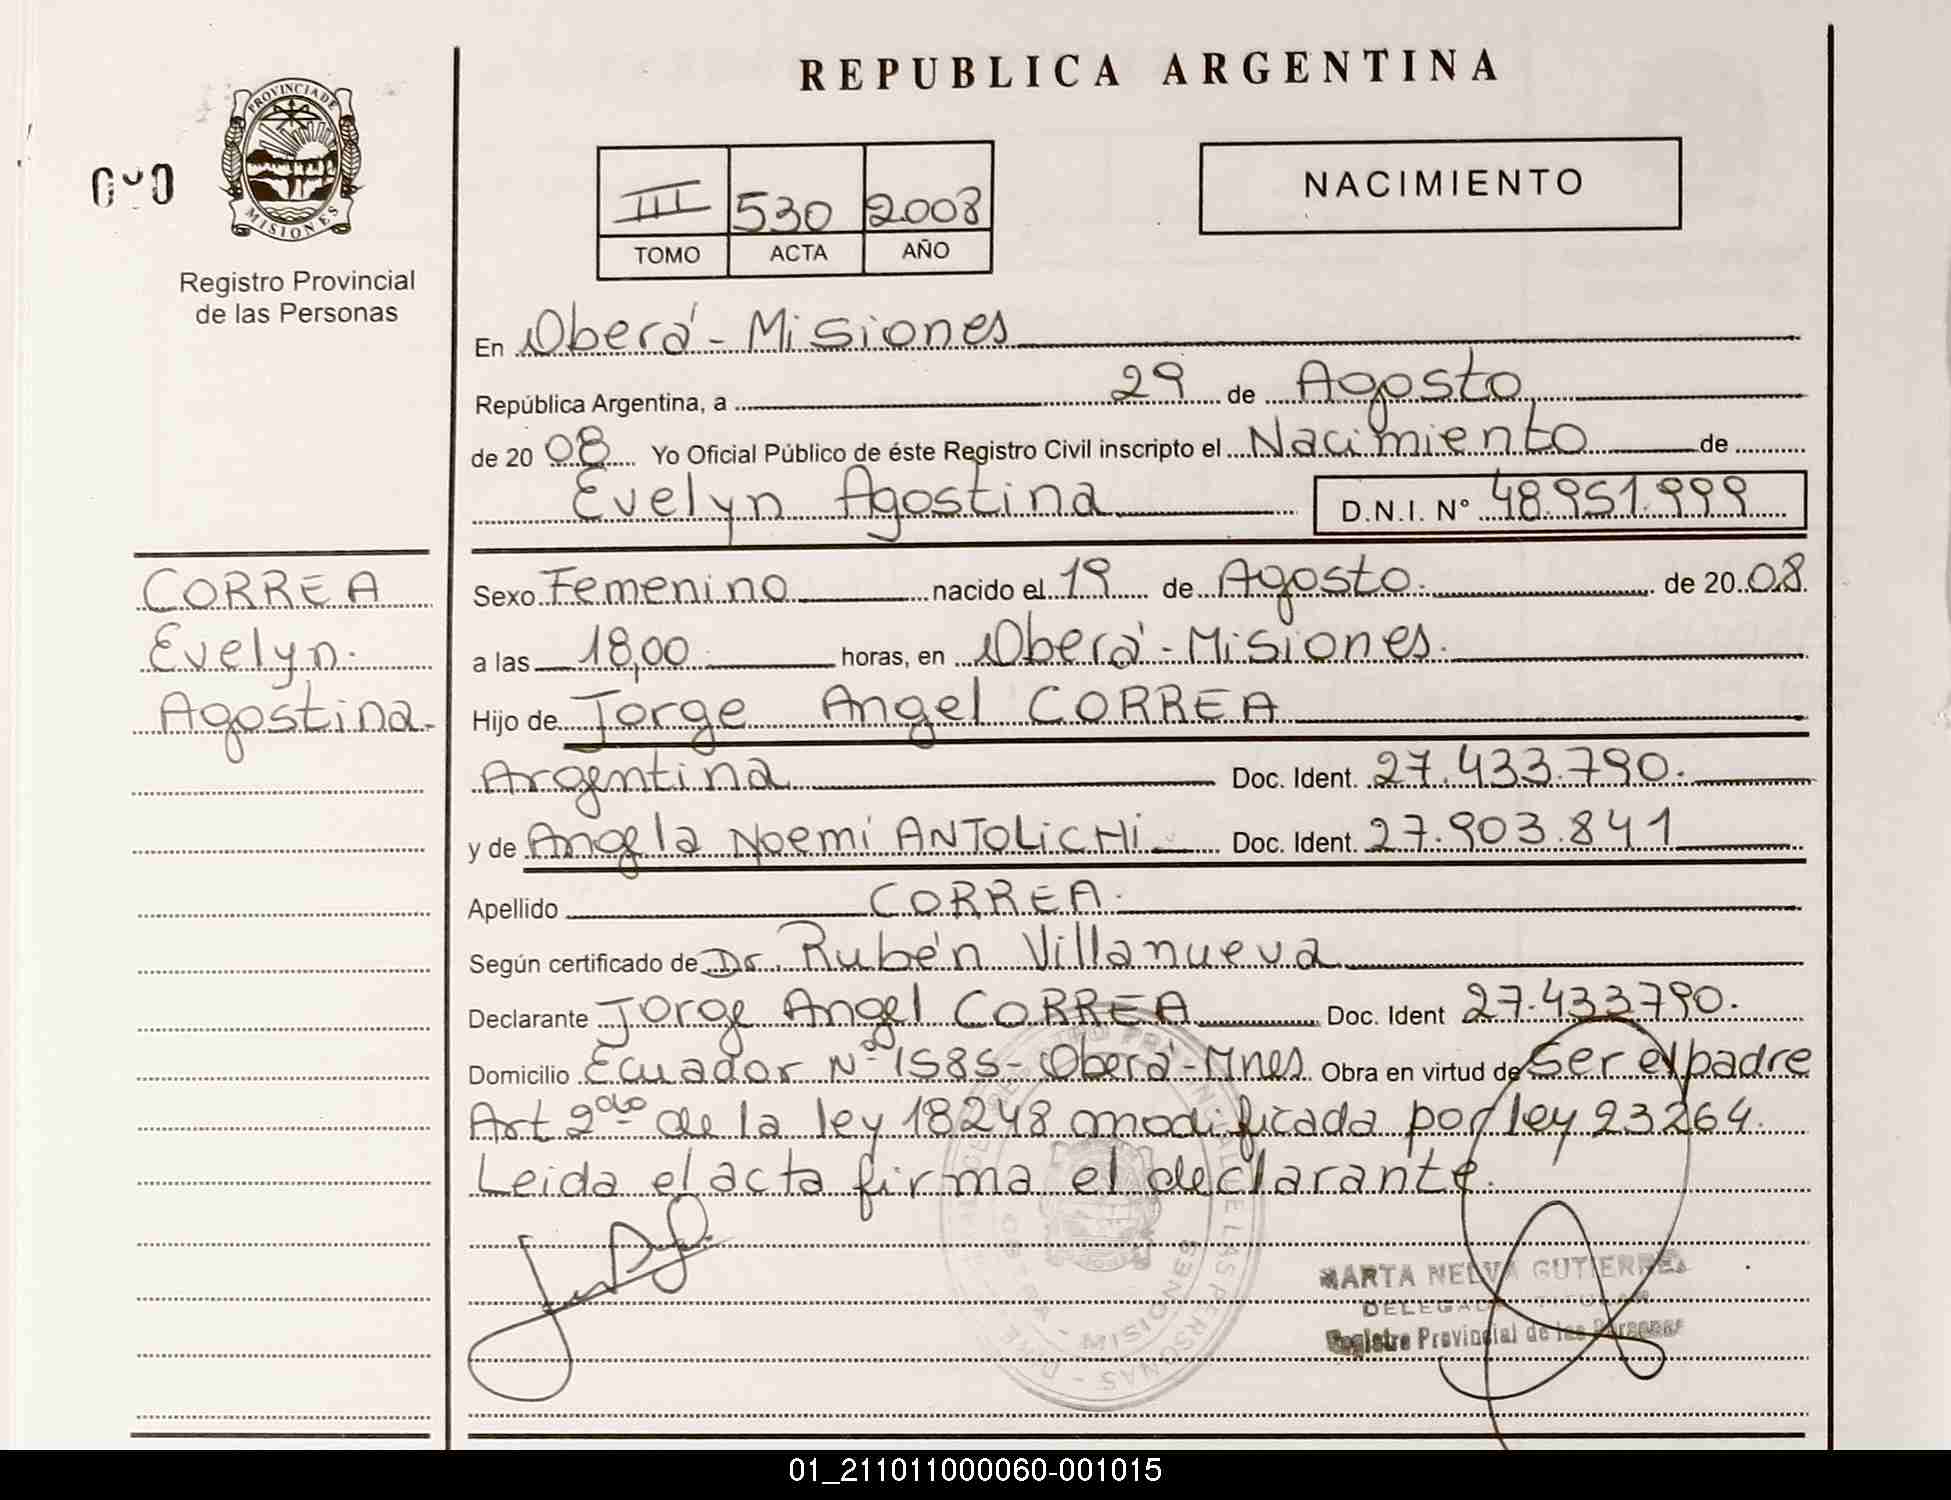 REPUBLICA ARGENTINA
PROVINCIA DE
MISIONES
Registro Provincial
de las Personas
III 530 2008
TOMO ACTA AÑO
NACIMIENTO
En Oberá - Misiones
República Argentina, a 29 de Agosto
de 20 08 Yo Oficial Público de éste Registro Civil inscripto el Nacimiento de
Evelyn Agostina D.N.I. Nº 48.951.999
CORREA
Evelyn.
Agostina.-
Sexo Femenino nacido el 19 de Agosto. de 20 08.
a las 18,00 horas, en Oberá - Misiones.
Hijo de Jorge Angel CORREA
Argentina Doc. Ident. 27.433.790.
y de Angela Noemí ANTOLICHI Doc. Ident. 27.903.841
Apellido CORREA.
Según certificado de Dr. Rubén Villanueva
Declarante Jorge Angel CORREA Doc. Ident 27.433790.
Domicilio Ecuador Nº 1585- Oberá - Mnes Obra en virtud de Ser el padre
Art 2do de la ley 18248 modificada por ley 23264.
Leida el acta firma el declarante.
MARTA NELVA GUTIERREZ
DELEGADA TITULAR
Registro Provincial de las Personas
MISIONES
01_211011000060-001015